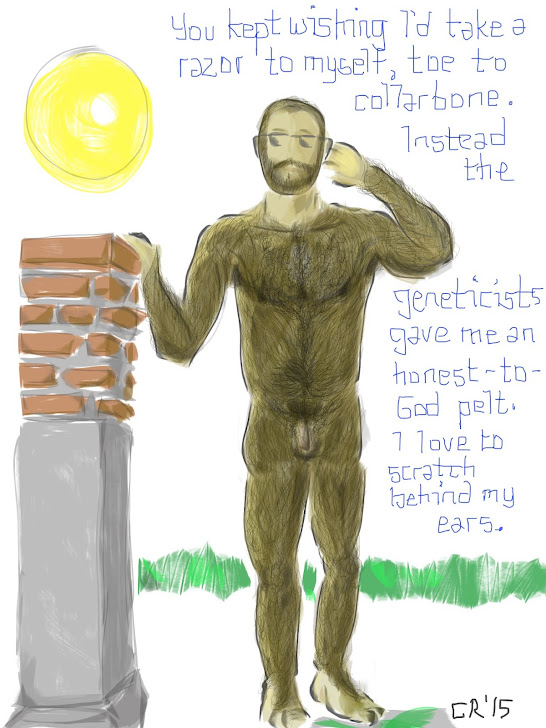 You kept wishing I'd take a
razor to myself, toe to
collarbone.
Instead
the
geneticists
gave me an
honest-to-
God pelt.
I love to
scratch
behind my
ears.
CR'15